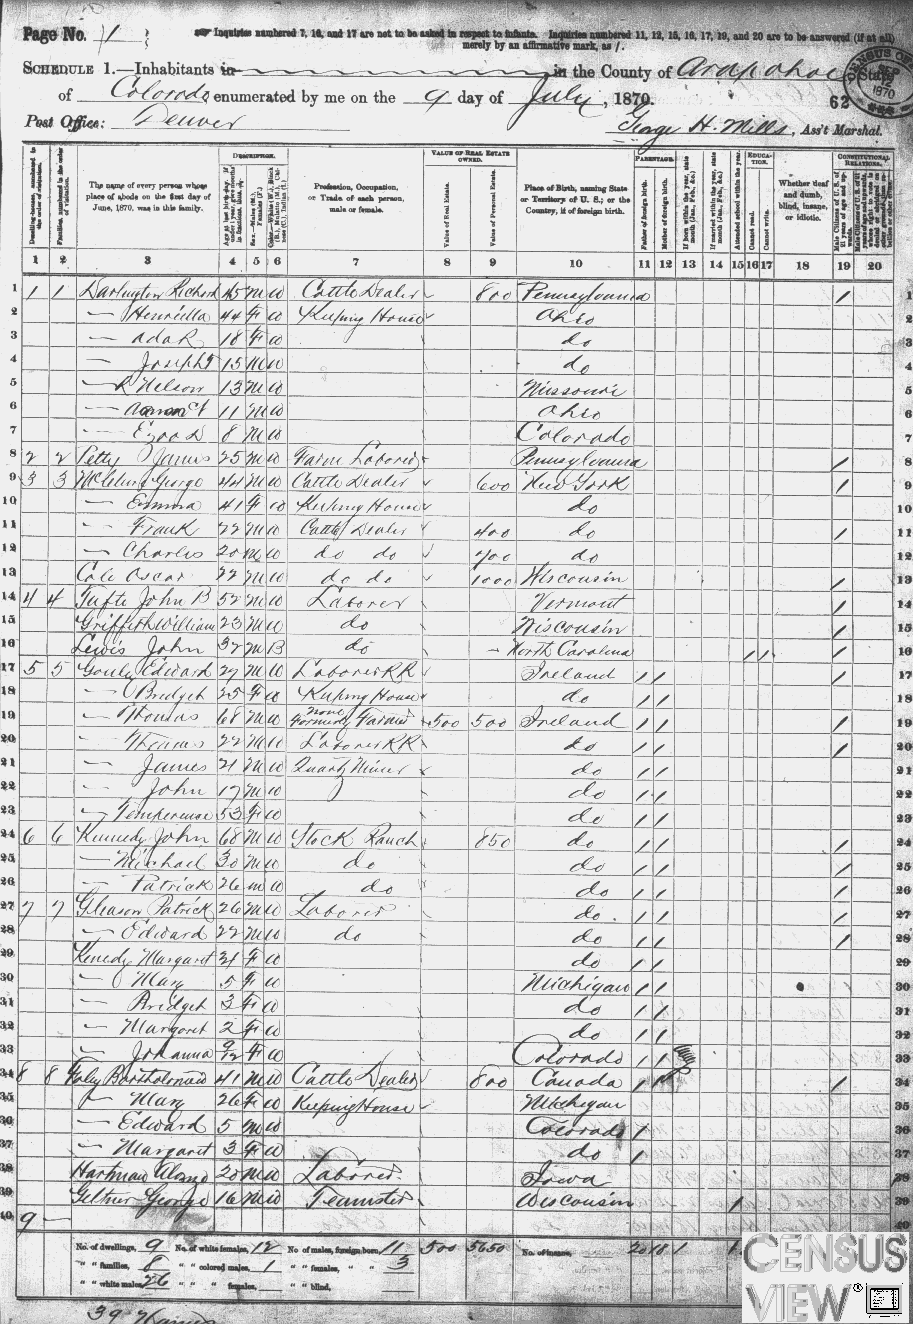 Page No. 1
Inquiries numbered 7, 16, and 17 are not to be asked in respect to infants. Inquiries numbered 11, 12, 15, 16, 17, 19, and 20 are to be answered (if at all) merely by an affirmative mark, as /.
SCHEDULE 1.—Inhabitants in in the County of Arapahoe, State
of Colorado, enumerated by me on the 9 day of July, 1870. 62
Post Office: Denver George H. Mills, Ass't Marshal.
CENSUS OF 1870
DESCRIPTION. VALUE OF REAL ESTATE OWNED. PARENTAGE. EDUCATION. CONSTITUTIONAL RELATIONS.
The name of every person whose place of abode on the first day of June, 1870, was in this family.
Profession, Occupation, or Trade of each person, male or female.
Value of Real Estate. Value of Personal Estate.
Place of Birth, naming State or Territory of U. S.; or the Country, if of foreign birth.
Father of foreign birth. Mother of foreign birth.
If born within the year, state month (Jan., Feb., &c.)
If married within the year, state month (Jan., Feb., &c.)
Attended school within the year.
Cannot read. Cannot write.
Whether deaf and dumb, blind, insane, or idiotic.
1 2 3 4 5 6 7 8 9 10 11 12 13 14 15 16 17 18 19 20
1 1 1 Darlington Richard 45 M W Cattle Dealer 800 Pennsylvania / 1
2 — Henrietta 44 F W Keeping House Ohio 2
3 — Ada R 18 F W do 3
4 — Joseph T 15 M W do 4
5 — R Nelson 13 M W Missouri 5
6 — 11 M W Ohio 6
7 — Ezra D 8 M W Colorado 7
8 2 2 Petty James 25 M W Farm Laborer Pennsylvania / 8
9 3 3 George 44 M W Cattle Dealer 600 New York / 9
10 — Emma 41 F W Keeping House do 10
11 — Frank 22 M W Cattle Dealer 400 do / 11
12 — Charles 20 M W do do 700 do 12
13 Cole Oscar 22 M W do do 1000 Wisconsin / 13
14 4 4 Tufts John B 52 M W Laborer Vermont / 14
15 Griffith William 23 M W do Wisconsin / 15
16 Lewis John 32 M B do North Carolina / / / 16
17 5 5 Edward 27 M W Laborer RR Ireland / / / 17
18 — Bridget 25 F W Keeping House do / / 18
19 — Thomas 68 M W None Formerly Farmer 500 500 Ireland / / / 19
20 — Thomas 22 M W Laborer RR do / / / 20
21 — James 21 M W Quartz Miner do / / 21
22 — John 17 M W do / / 22
23 — Temperance 53 F W do / / 23
24 6 6 Kennedy John 68 M W Stock Ranch 850 do / / / 24
25 — Michael 30 M W do do / / / 25
26 — Patrick 26 M W do do / / / 26
27 7 7 Gleason Patrick 26 M W Laborer do / / / 27
28 — Edward 22 M W do do / / / 28
29 Kenedy Margaret 21 F W do / / 29
30 — Mary 5 F W Michigan / / 30
31 — Bridget 3 F W do / / 31
32 — Margaret 2 F W do / / 32
33 — Johanna 9/12 F W Colorado / / 33
34 8 8 Foley Bartholomew 41 M W Cattle Dealer 800 Canada / / / 34
35 — Mary 26 F W Keeping House Michigan 35
36 — Edward 5 M W Colorado / 36
37 — Margaret 3 F W do / 37
38 Hartman Alonzo 20 M W Laborer Iowa 38
39 Geltner George 16 M W Teamster Wisconsin / 39
40 9 — 40
No. of dwellings, 9 No. of white females, 12 No. of males, foreign born, 11 500 5650 No. of insane, 20 18 1 1
" " families, 8 " " colored males, 1 " " females, " " 3
" " white males, 26 " " " females, " " blind,
CENSUS
VIEW